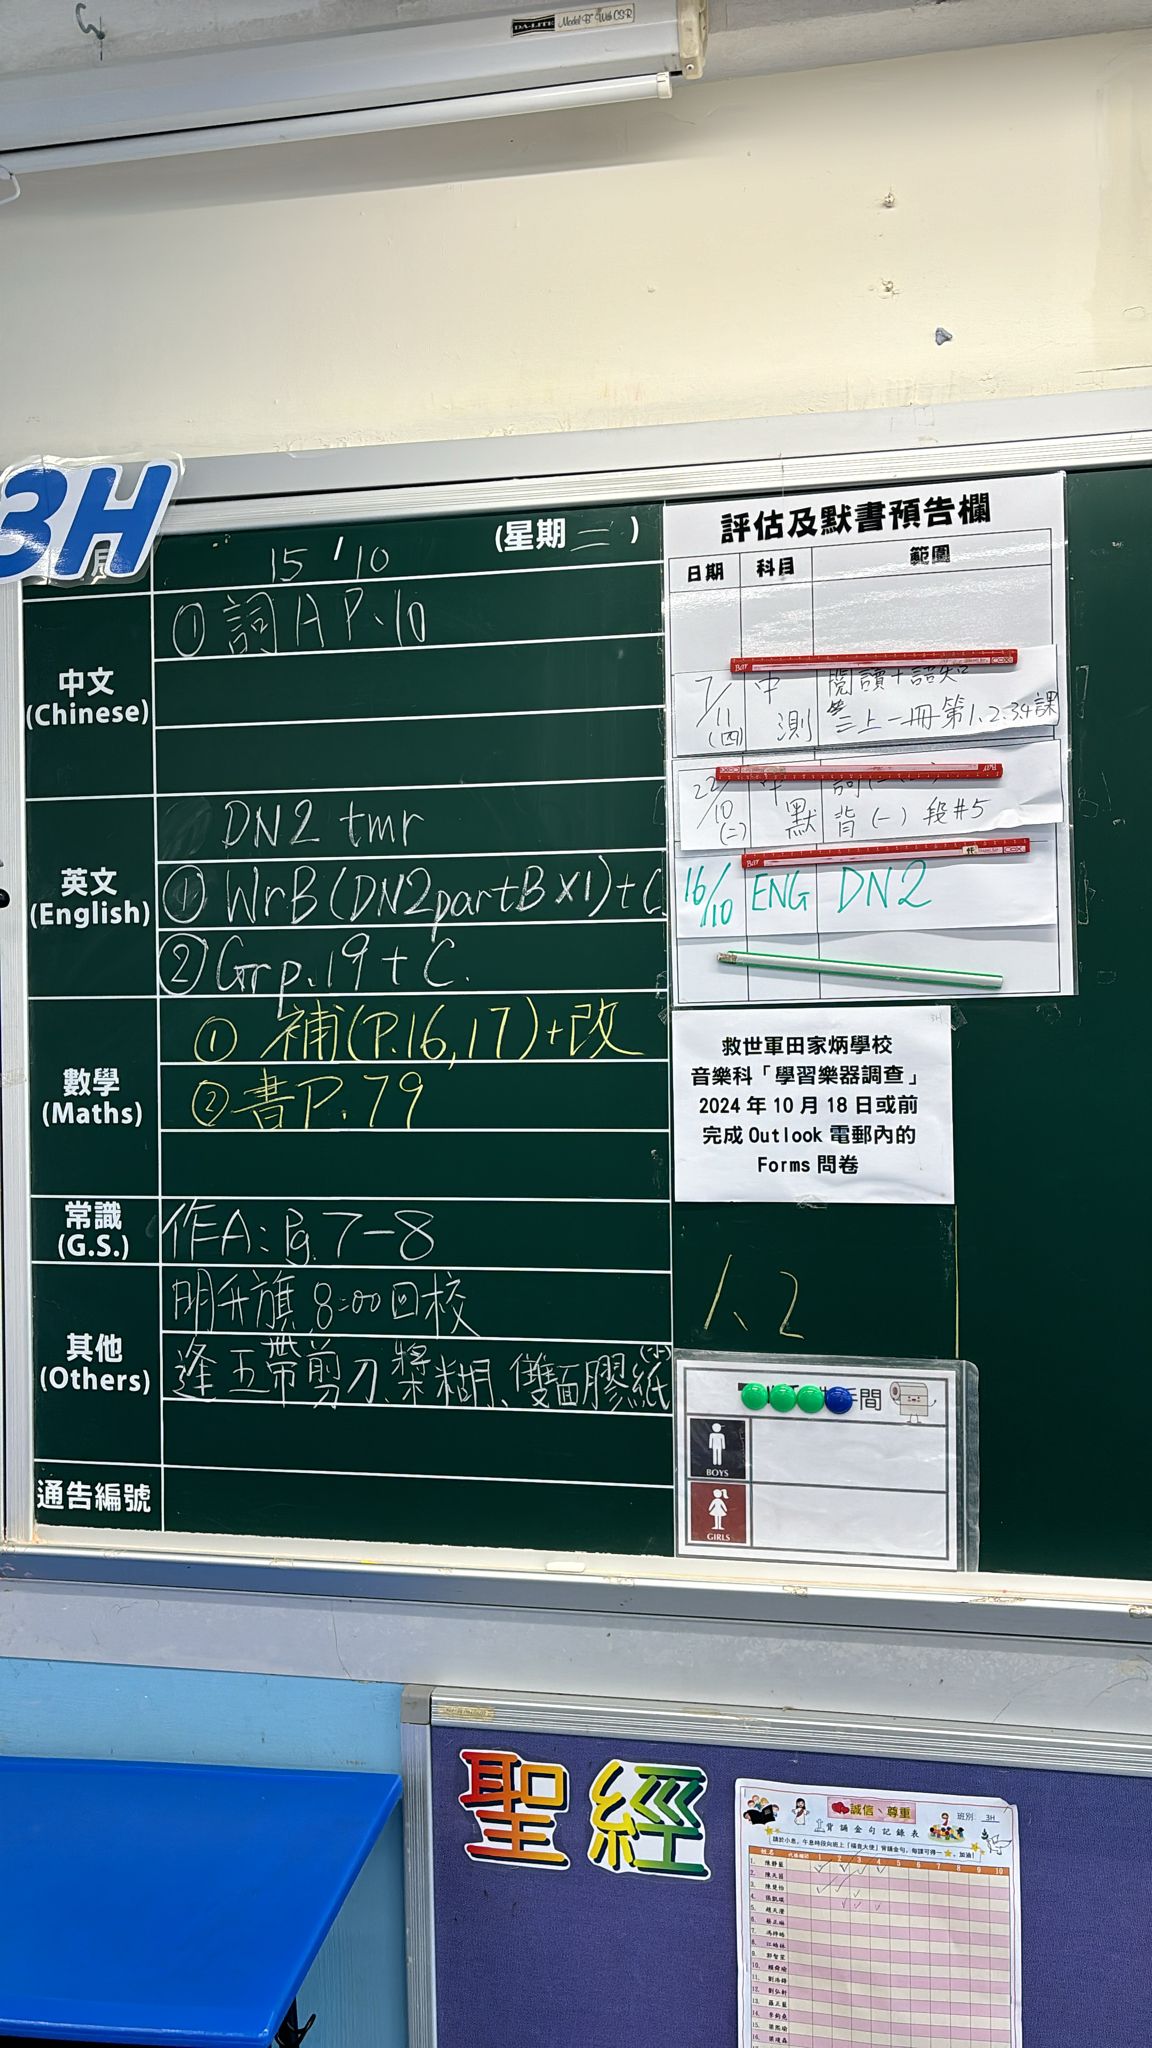 DA-LITE Model B With CSR
3H
15 / 10 (星期二)
中文
(Chinese)
① 詞A P.10
英文
(English)
DN2 tmr
① WrB (DN2partB×1)+C.
② Gr p.19 + C.
數學
(Maths)
① 補(P.16,17)+改
② 書P.79
常識
(G.S.)
作A: Pg.7-8
其他
(Others)
明升旗 8:00回校
逢五帶剪刀、漿糊、雙面膠紙(小)
通告編號
評估及默書預告欄
日期 科目 範圍
7/11 (四) 中測 閱讀+語知
三上一冊第1、2、3、4課
22/10 (二) 默 背(一)段#5
16/10 ENG DN2
3H
救世軍田家炳學校
音樂科「學習樂器調查」
2024 年 10 月 18 日或前
完成 Outlook 電郵內的
Forms 問卷
1、2
間
BOYS
GIRLS
聖經
誠信、尊重
班別: 3H
背誦金句記錄表
姓名 1 2 3 4 5 6 7 8 9 10